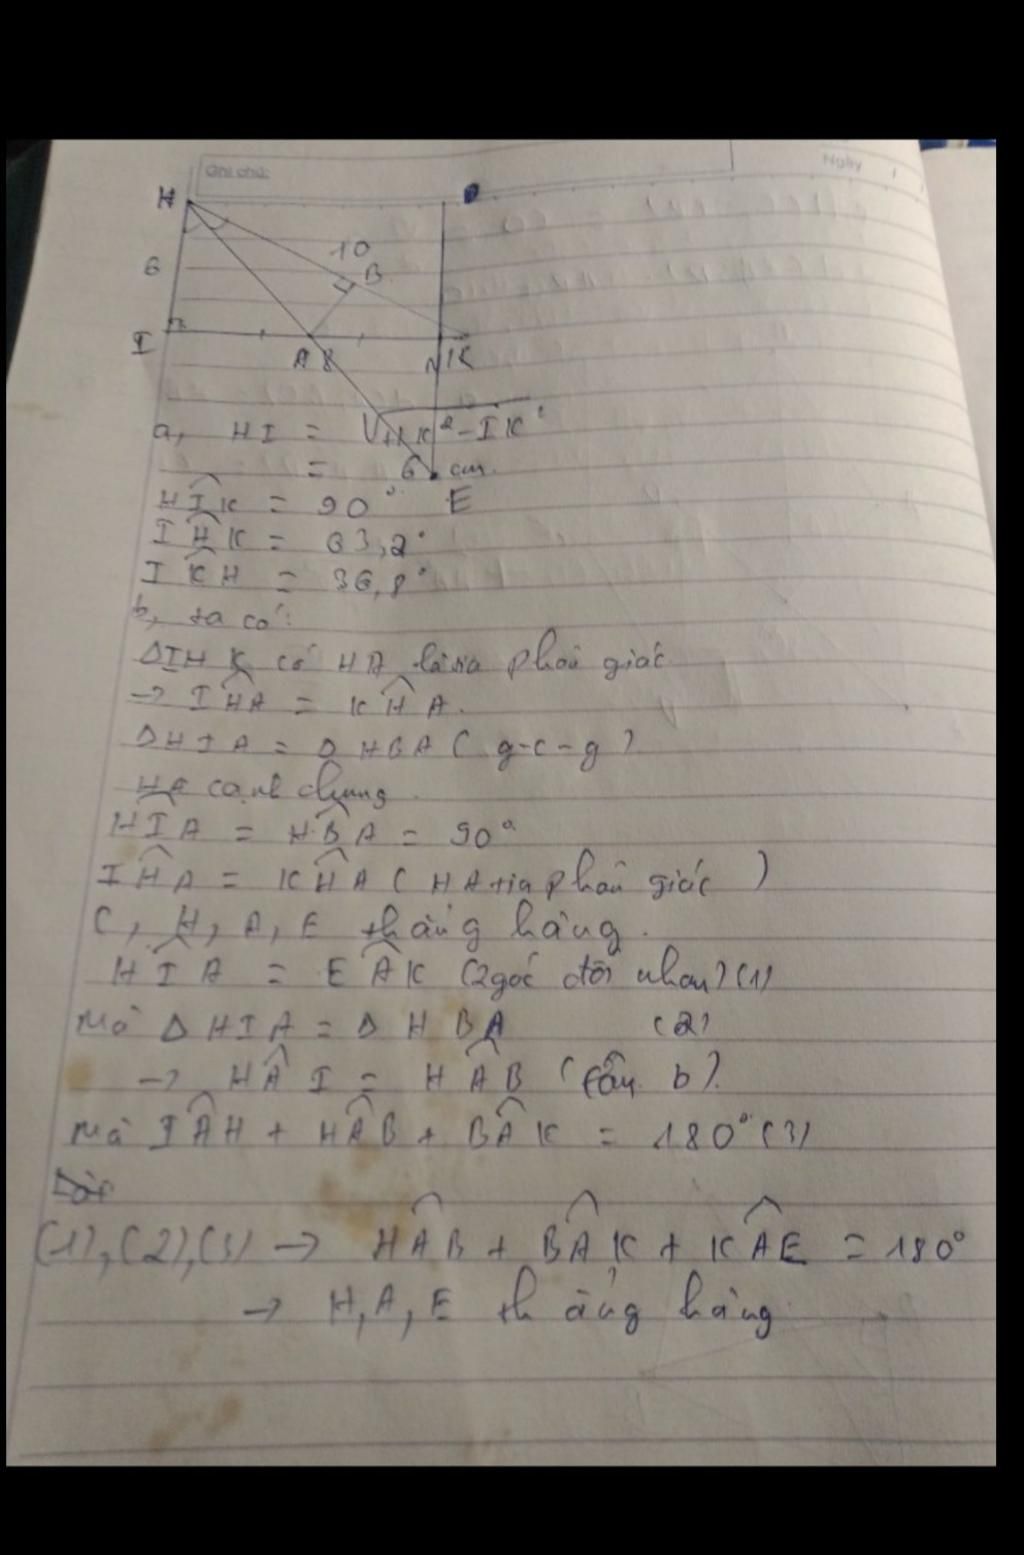 Ghi chú:
Ngày
H
10
6
B
I
A 8
K
a, HI = √HK² - IK²
= 6 cm.
E
HIK = 90°
IHK = 63,2°
IKH = 36,8°
b, ta có:
ΔIHK có HA là tia phân giác
→ IHA = KHA.
ΔHIA = ΔHBA ( g-c-g )
HA cạnh chung
HIA = HBA = 90°
IHA = KHA ( HA tia phân giác )
C, H, A, E thẳng hàng.
HIA = EAK (2góc đối nhau) (1)
Mà ΔHIA = ΔHBA (2)
→ HAI = HAB (câu b).
Mà IAH + HAB + BAK = 180° (3)
(1), (2), (3) → HAB + BAK + KAE = 180°
→ H, A, E thẳng hàng.